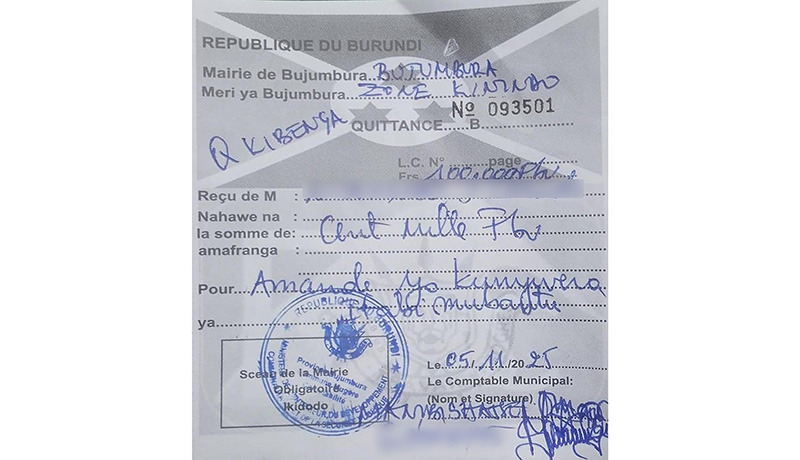 REPUBLIQUE DU BURUNDI
Mairie de Bujumbura BUJUMBURA
Meri ya Bujumbura ZONE KININDO
Nº 093501
Q KIBENGA QUITTANCE......B
L.C. Nº page
Frs 100.000Fbu
Reçu de M :
Nahawe na :
la somme de: Cent mille Fbu
amafranga :
Pour Amande yo kunywera
mubantu
ya
REPUBLIQUE BURUNDI
Province Bujumbura
Sceau de la Mairie
Obligatoire
Ikidodo
Le 05/11/2025
Le Comptable Municipal:
(Nom et Signature)